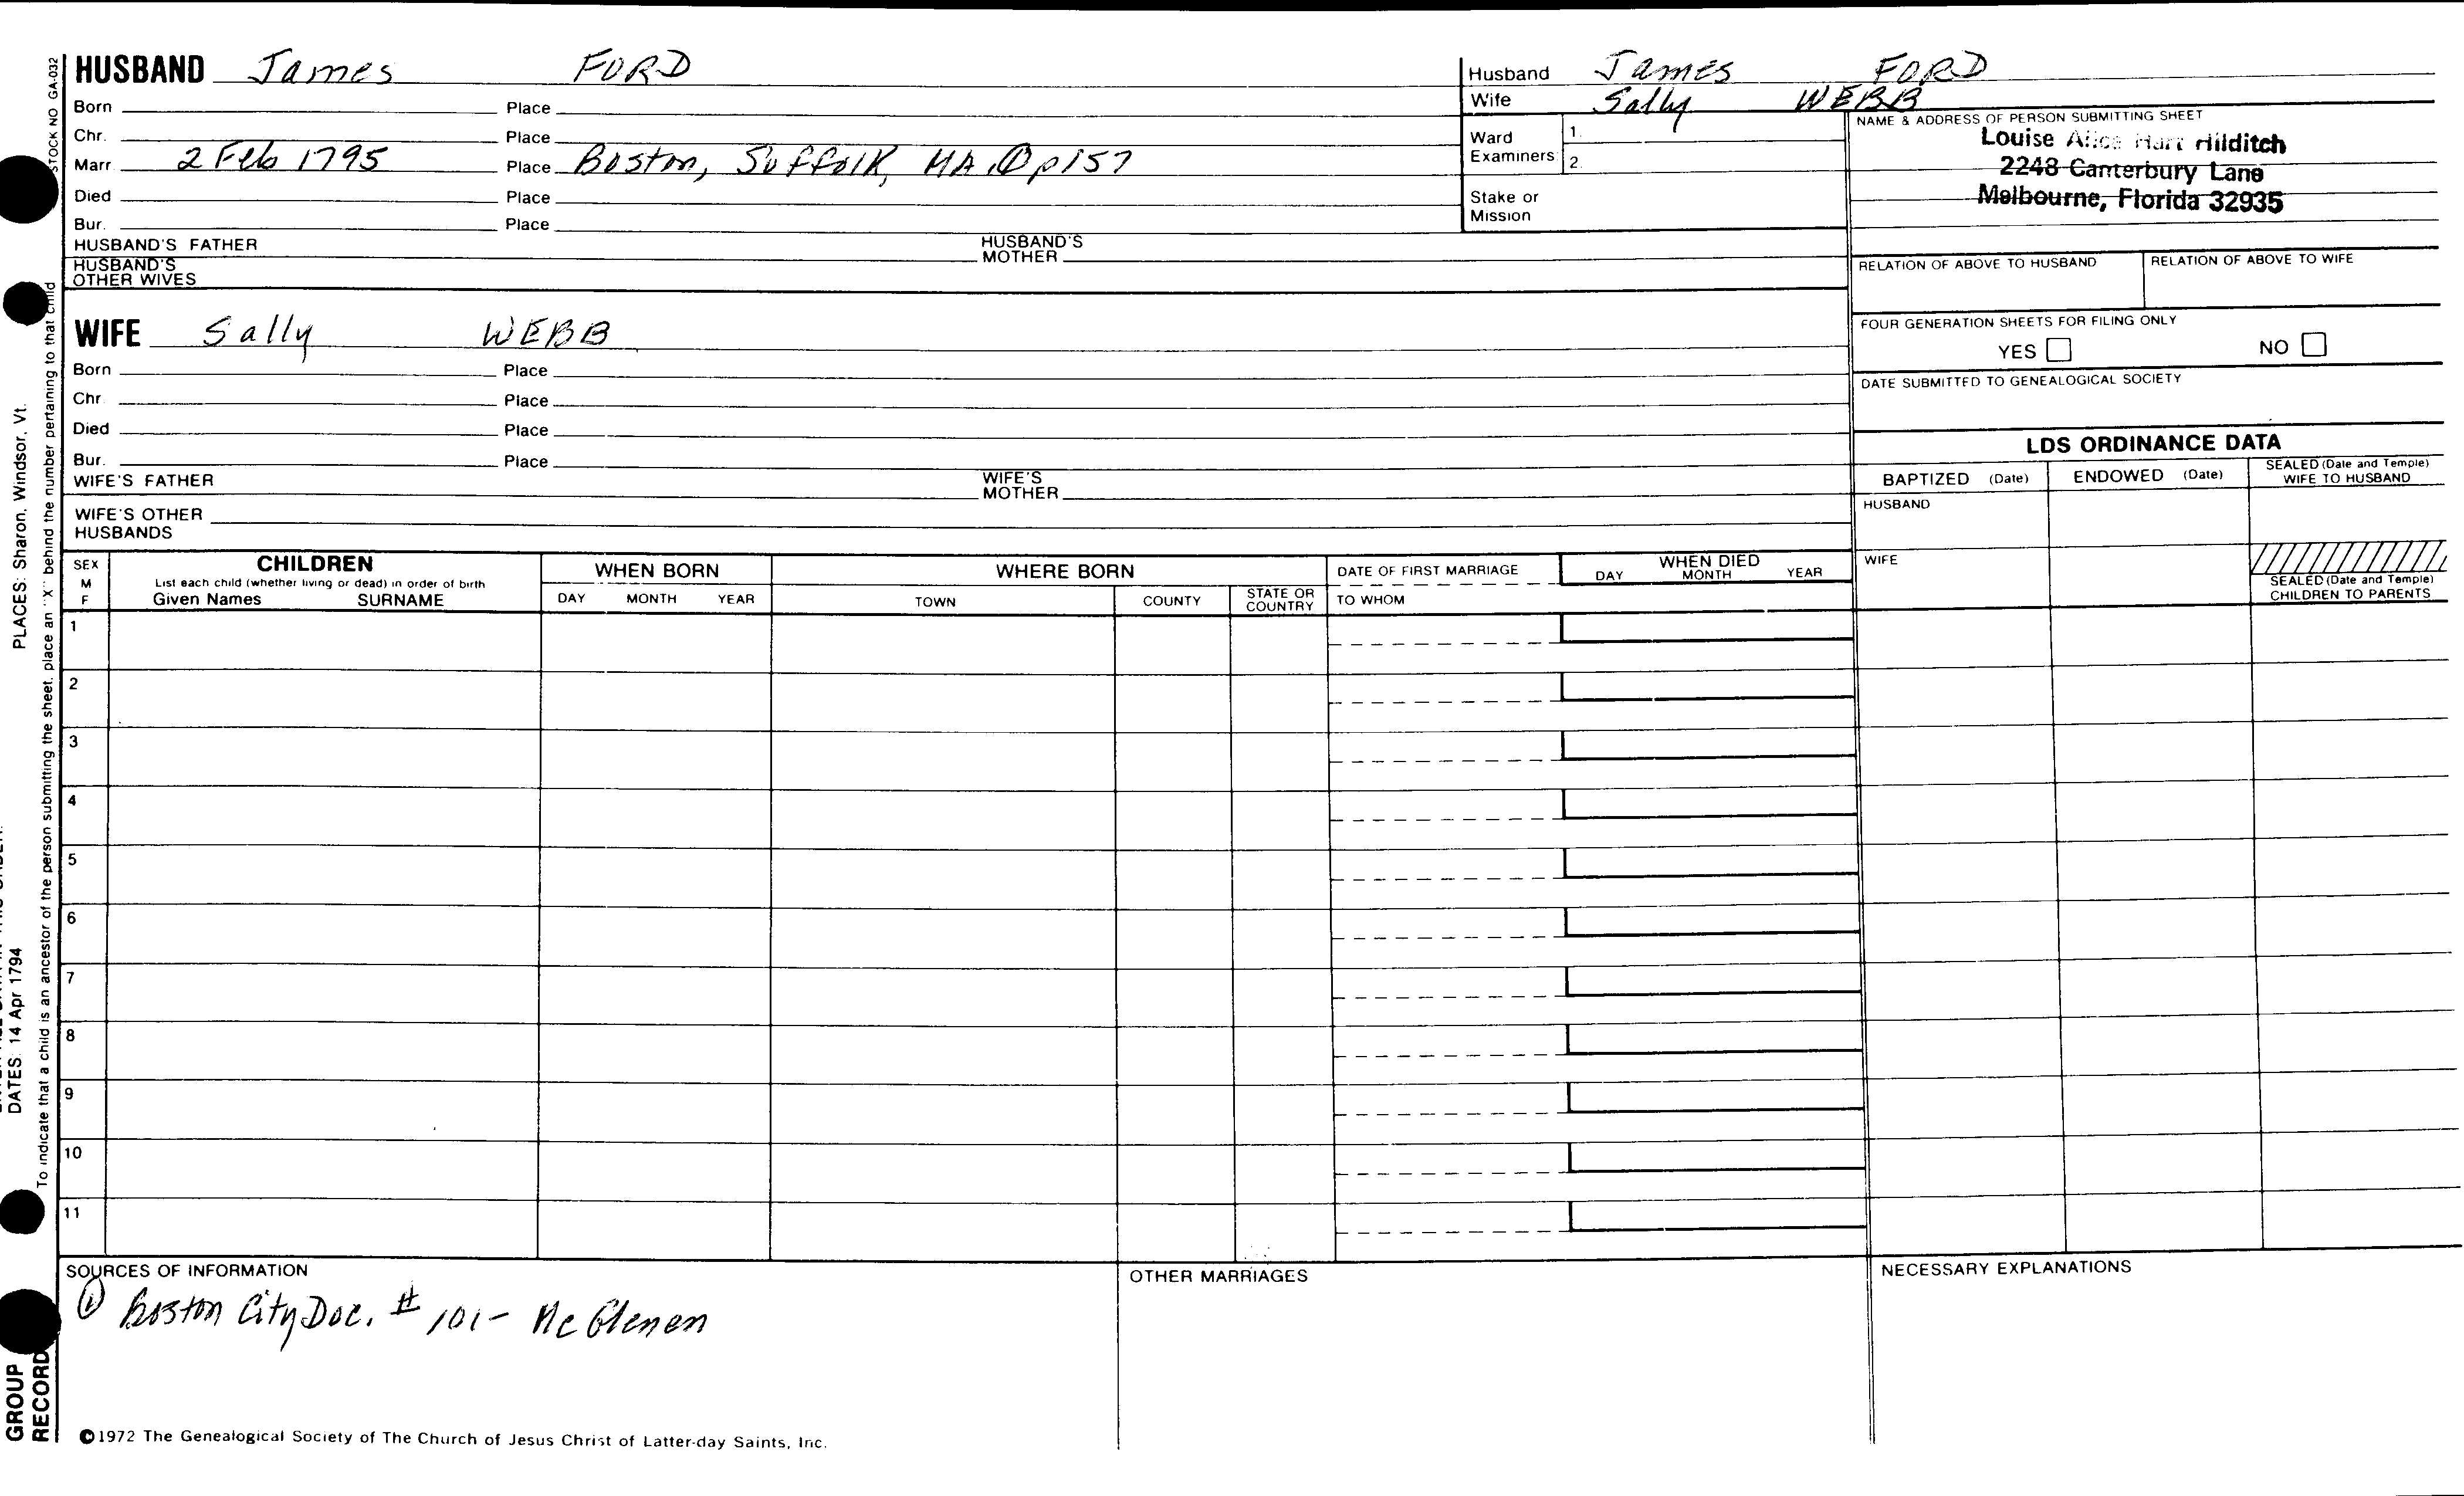 HUSBAND James FORD
Born Place
Chr. Place
Marr 2 Feb 1795 Place Boston, Suffolk, MA ① p 157
Died Place
Bur. Place
HUSBAND'S FATHER HUSBAND'S MOTHER
HUSBAND'S OTHER WIVES
WIFE Sally WEBB
Born Place
Chr. Place
Died Place
Bur. Place
WIFE'S FATHER WIFE'S MOTHER
WIFE'S OTHER HUSBANDS
Husband James FORD
Wife Sally WEBB
Ward Examiners 1.
2.
Stake or Mission
NAME & ADDRESS OF PERSON SUBMITTING SHEET
Louise Alice Hart Hilditch
2248 Canterbury Lane
Melbourne, Florida 32935
RELATION OF ABOVE TO HUSBAND RELATION OF ABOVE TO WIFE
FOUR GENERATION SHEETS FOR FILING ONLY
YES NO
DATE SUBMITTED TO GENEALOGICAL SOCIETY
LDS ORDINANCE DATA
BAPTIZED (Date) ENDOWED (Date) SEALED (Date and Temple) WIFE TO HUSBAND
HUSBAND
WIFE
SEALED (Date and Temple) CHILDREN TO PARENTS
SEX M F
CHILDREN
List each child (whether living or dead) in order of birth
Given Names SURNAME
WHEN BORN
DAY MONTH YEAR
WHERE BORN
TOWN COUNTY STATE OR COUNTRY
DATE OF FIRST MARRIAGE
TO WHOM
WHEN DIED
DAY MONTH YEAR
1
2
3
4
5
6
7
8
9
10
11
SOURCES OF INFORMATION
① Boston City Doc. # 101 - McGlenen
OTHER MARRIAGES
NECESSARY EXPLANATIONS
©1972 The Genealogical Society of The Church of Jesus Christ of Latter-day Saints, Inc.
STOCK NO GA-032
To indicate that a child is an ancestor of the person submitting the sheet, place an "X" behind the number pertaining to that child
PLACES: Sharon, Windsor, Vt.
DATES: 14 Apr 1794
GROUP
RECORD